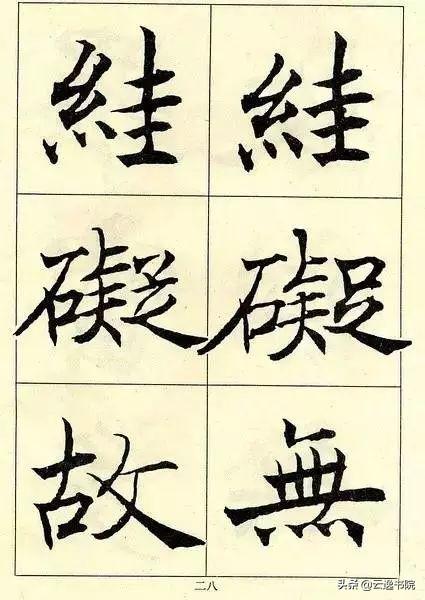 絓礙無
絓礙故
二八
头条 @云逸书院